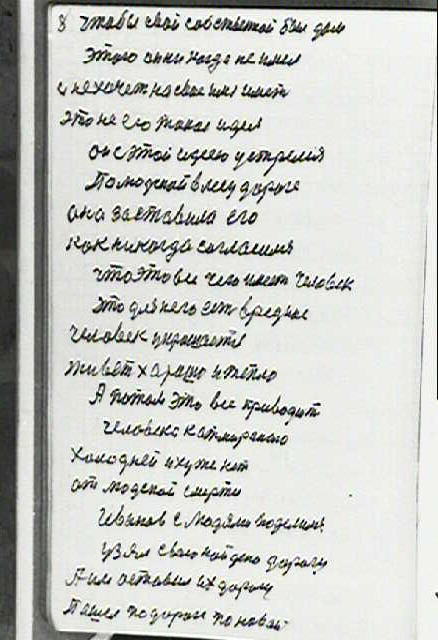 8 чтобы свой собственой был дом
этого он никогда не имел
и не хочет на свое имя иметь
это не его такая идея
он с этой идеею устремился
По людской всей дороге
она заставила его
как никогда согласился
что это все чего имеет человек
это для него есть вредное
человек украшается
живет харашо и тепло
А потом это все приводит
человека к
Холодней и хуже нет
от людской смерти
Иванов с людями поделился
взял свою найдено дорогу
А им оставил их дорогу
Пашел по дороге по новой